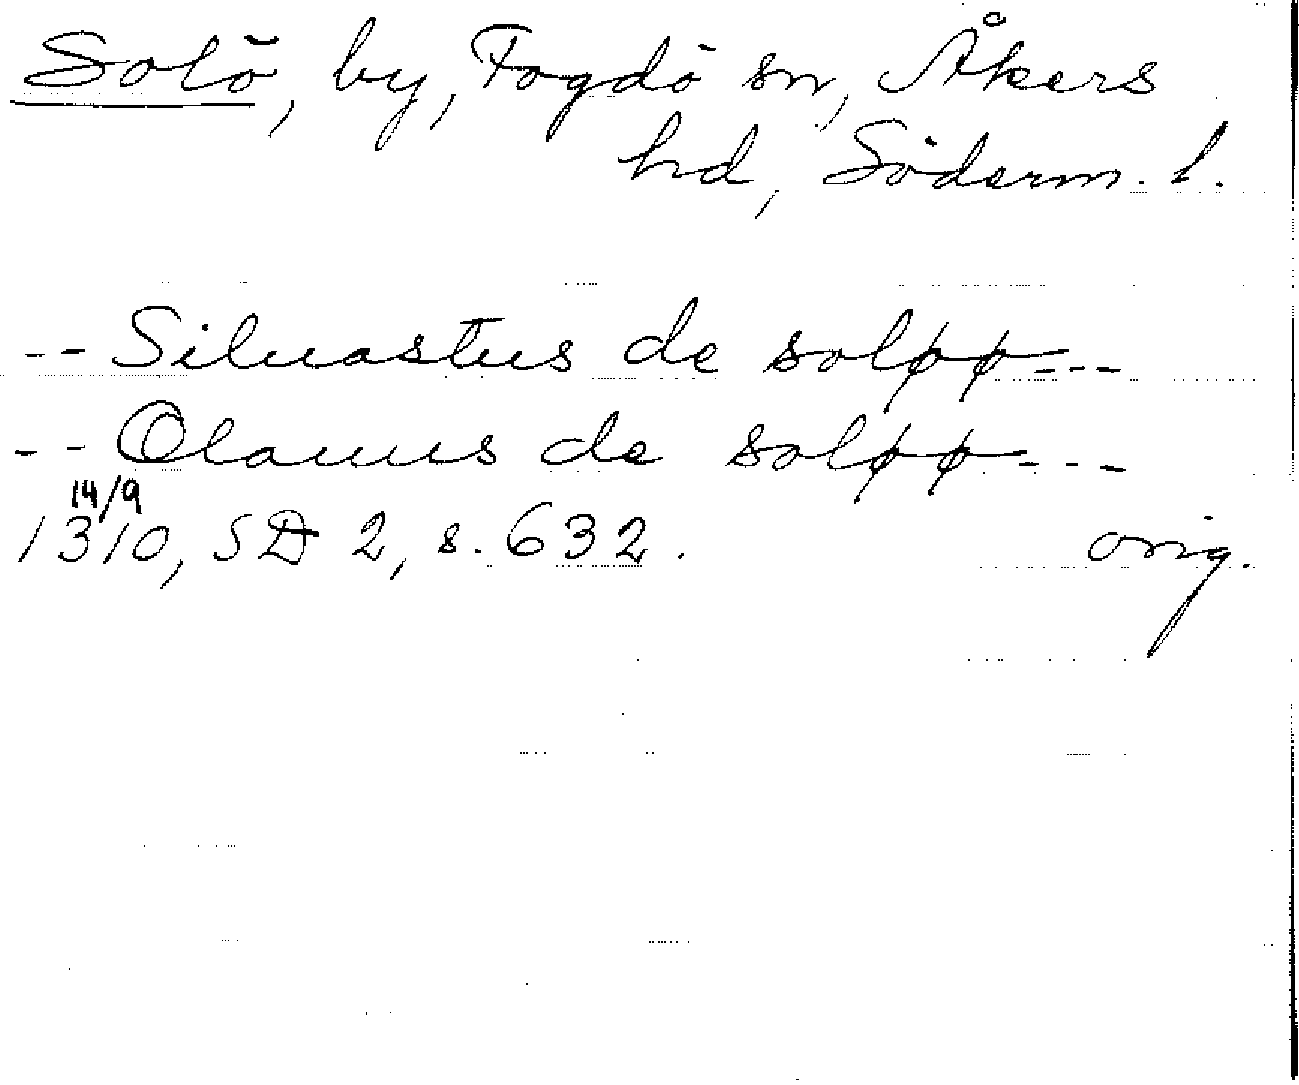 Solö, by, Fogdö sn, Åkers
hd, Söderm. l.
-- Siluastus de soløø---
-- Olauus de soløø---
14/9
1310, SD 2, s. 632. orig.